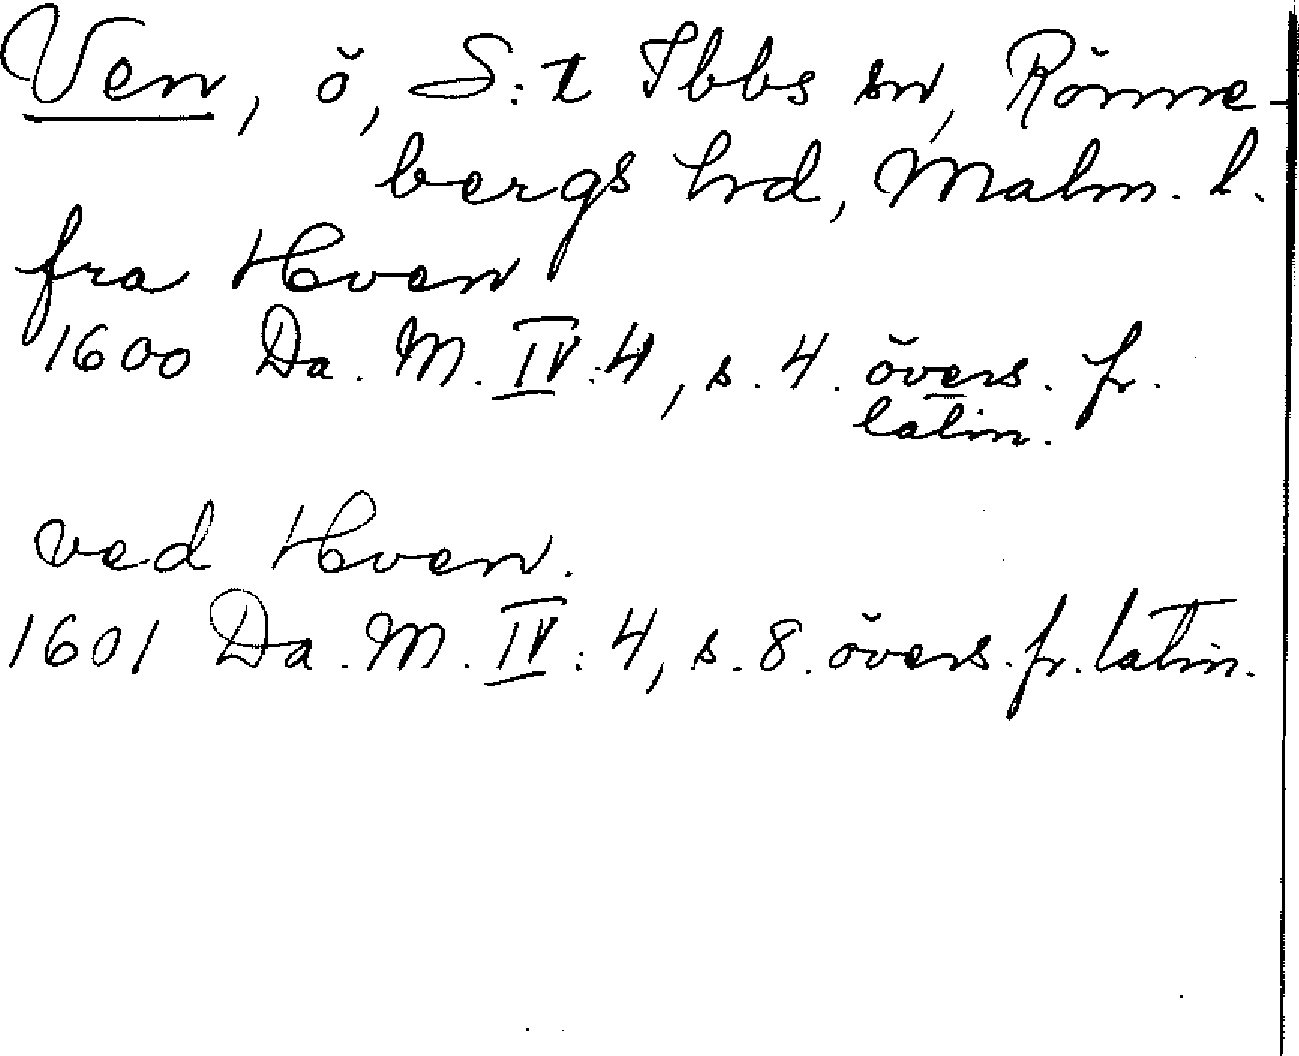 Ven, ö, S:t Ibbs sn, Rönne-
bergs hrd, Malm. l.
fra Hven
1600 Da. M. IV:4, s. 4. övers. fr.
latin.
ved Hven.
1601 Da. M. IV:4, s. 8. övers. fr. latin.